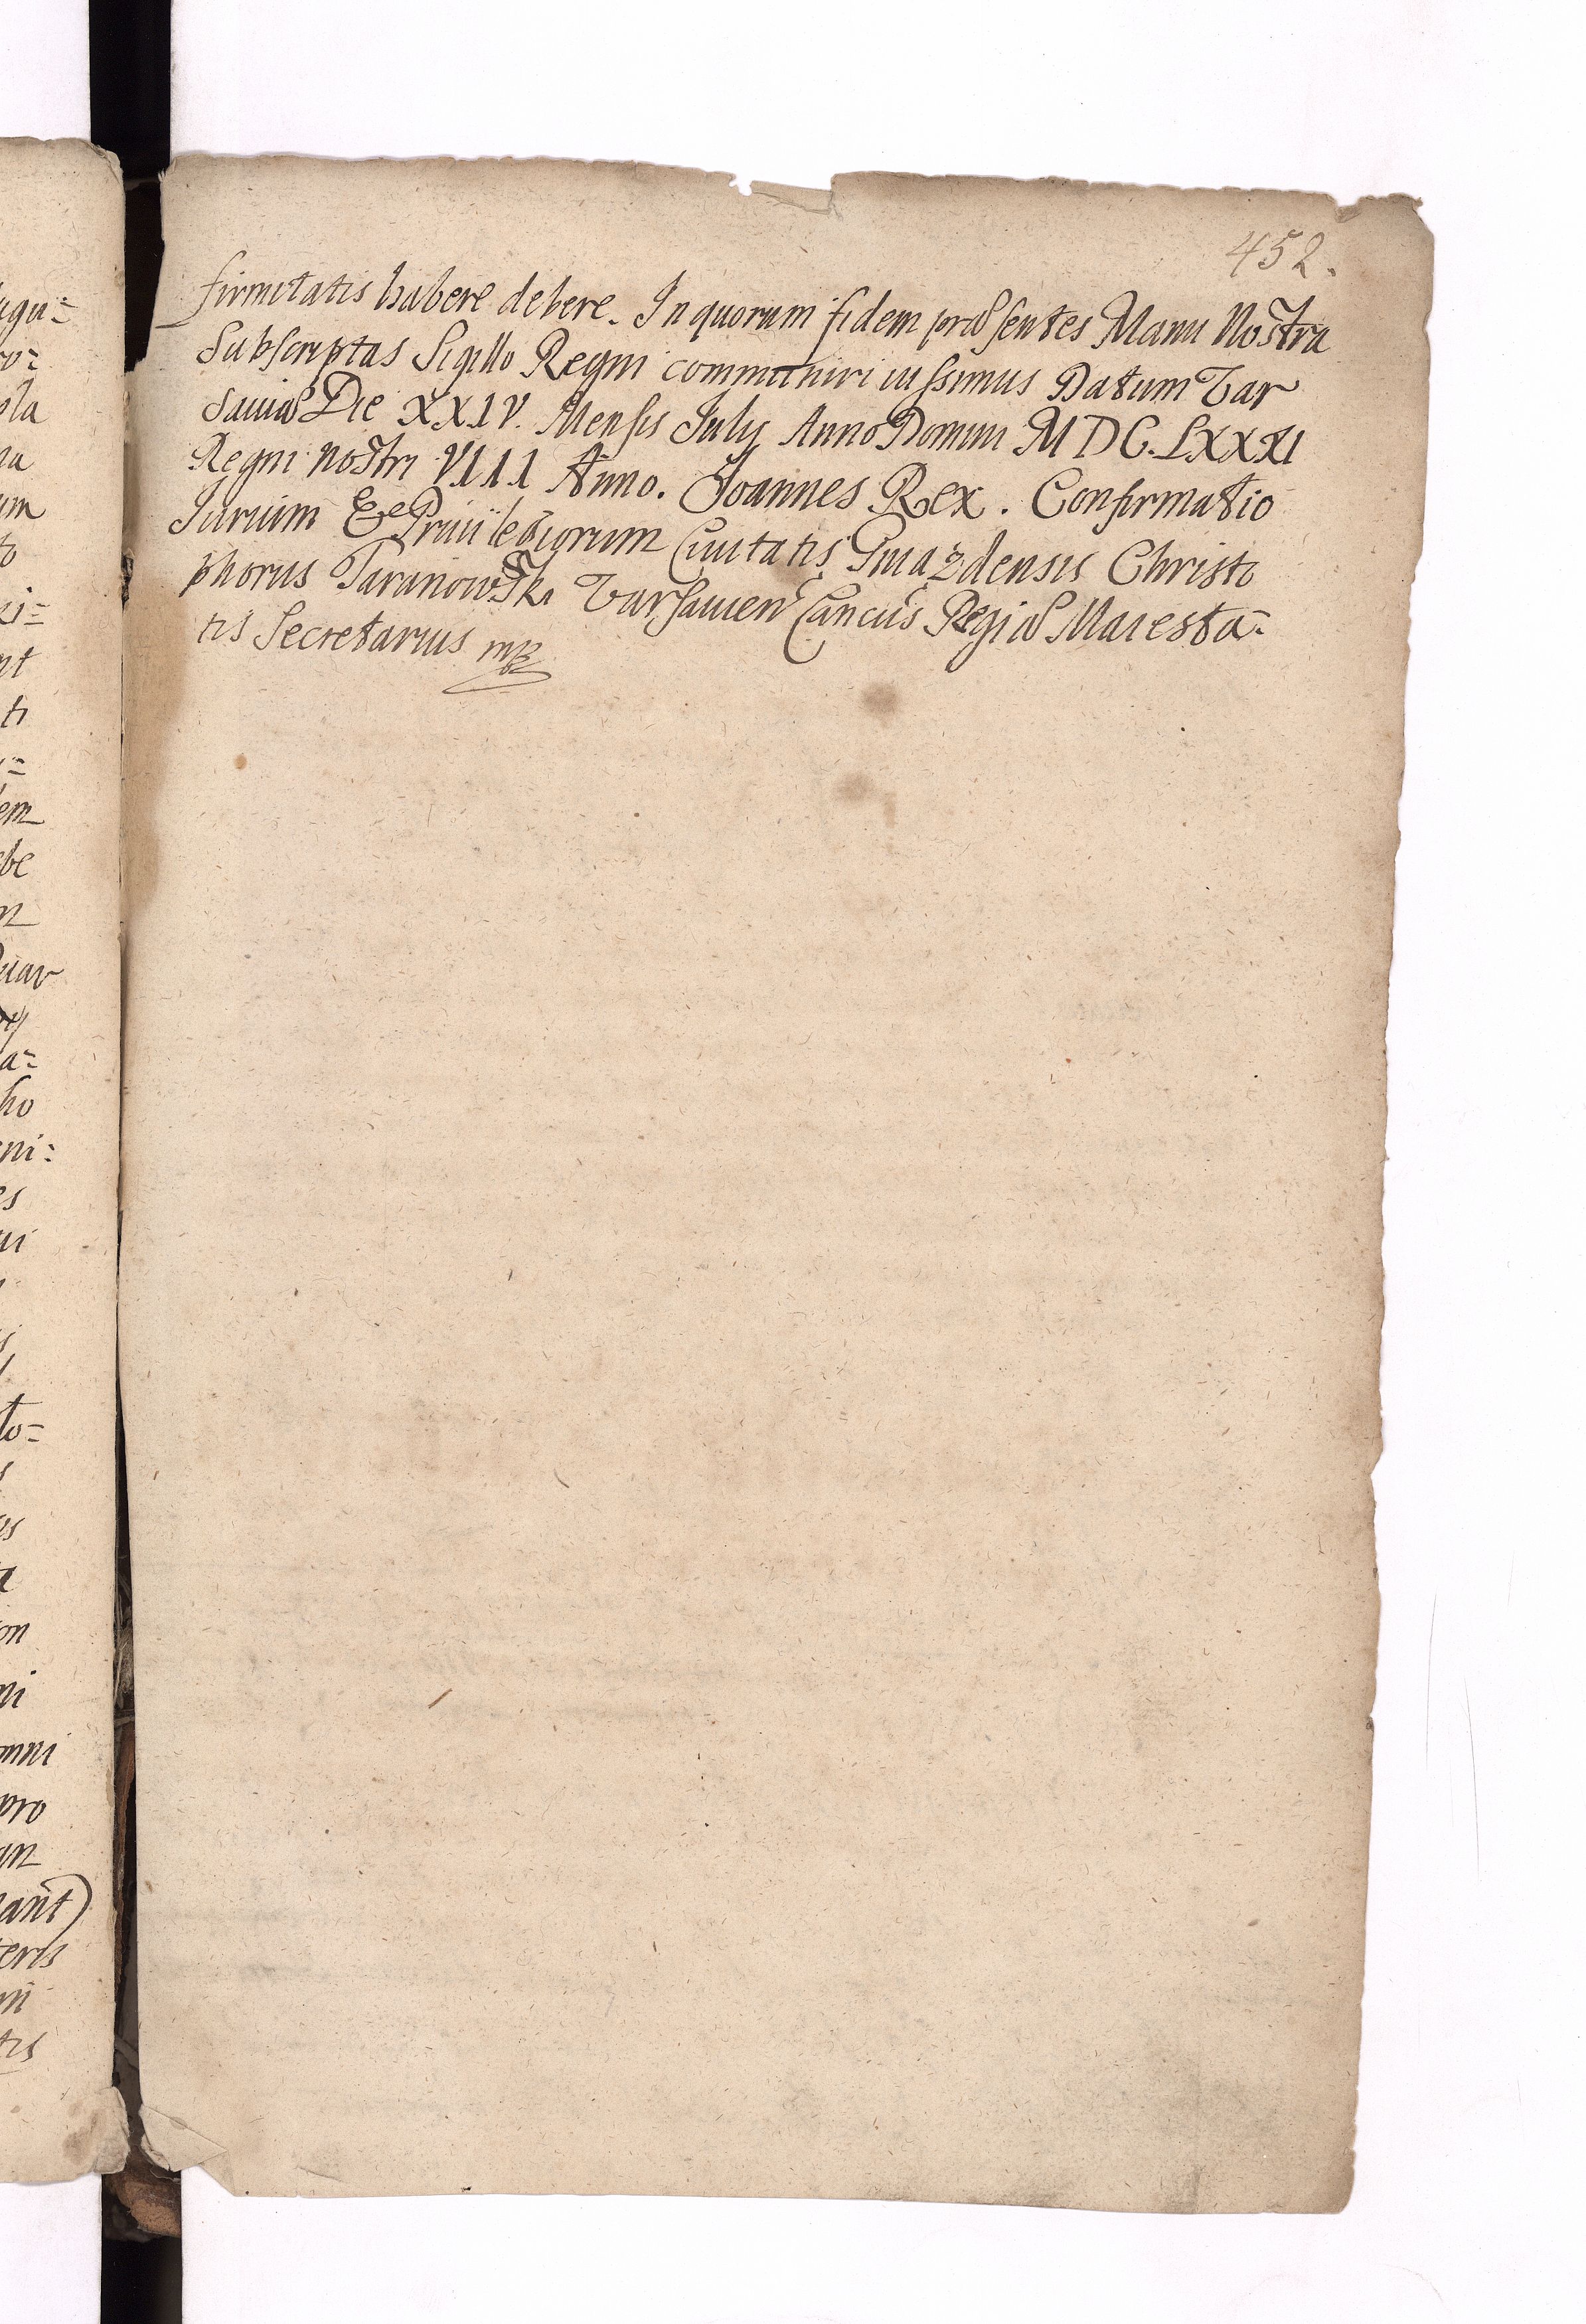 452.
firmitatis habere debere. In quorum fidem præsentes Manu Nostra
Subscriptas Sigillo Regni communiri iussimus Datum Var
Sauiæ Die XXIV. Mensis July Anno Domini MDC.LXXXI
Regni nostri VIII Anno. Joannes Rex. Confirmatio
Jurium & Priuilegiorum Ciuitatis Gniazdensis Christo
phorus Taranowski Varsauien Cancus Regiæ Maiesta=
tis Secretarius mp